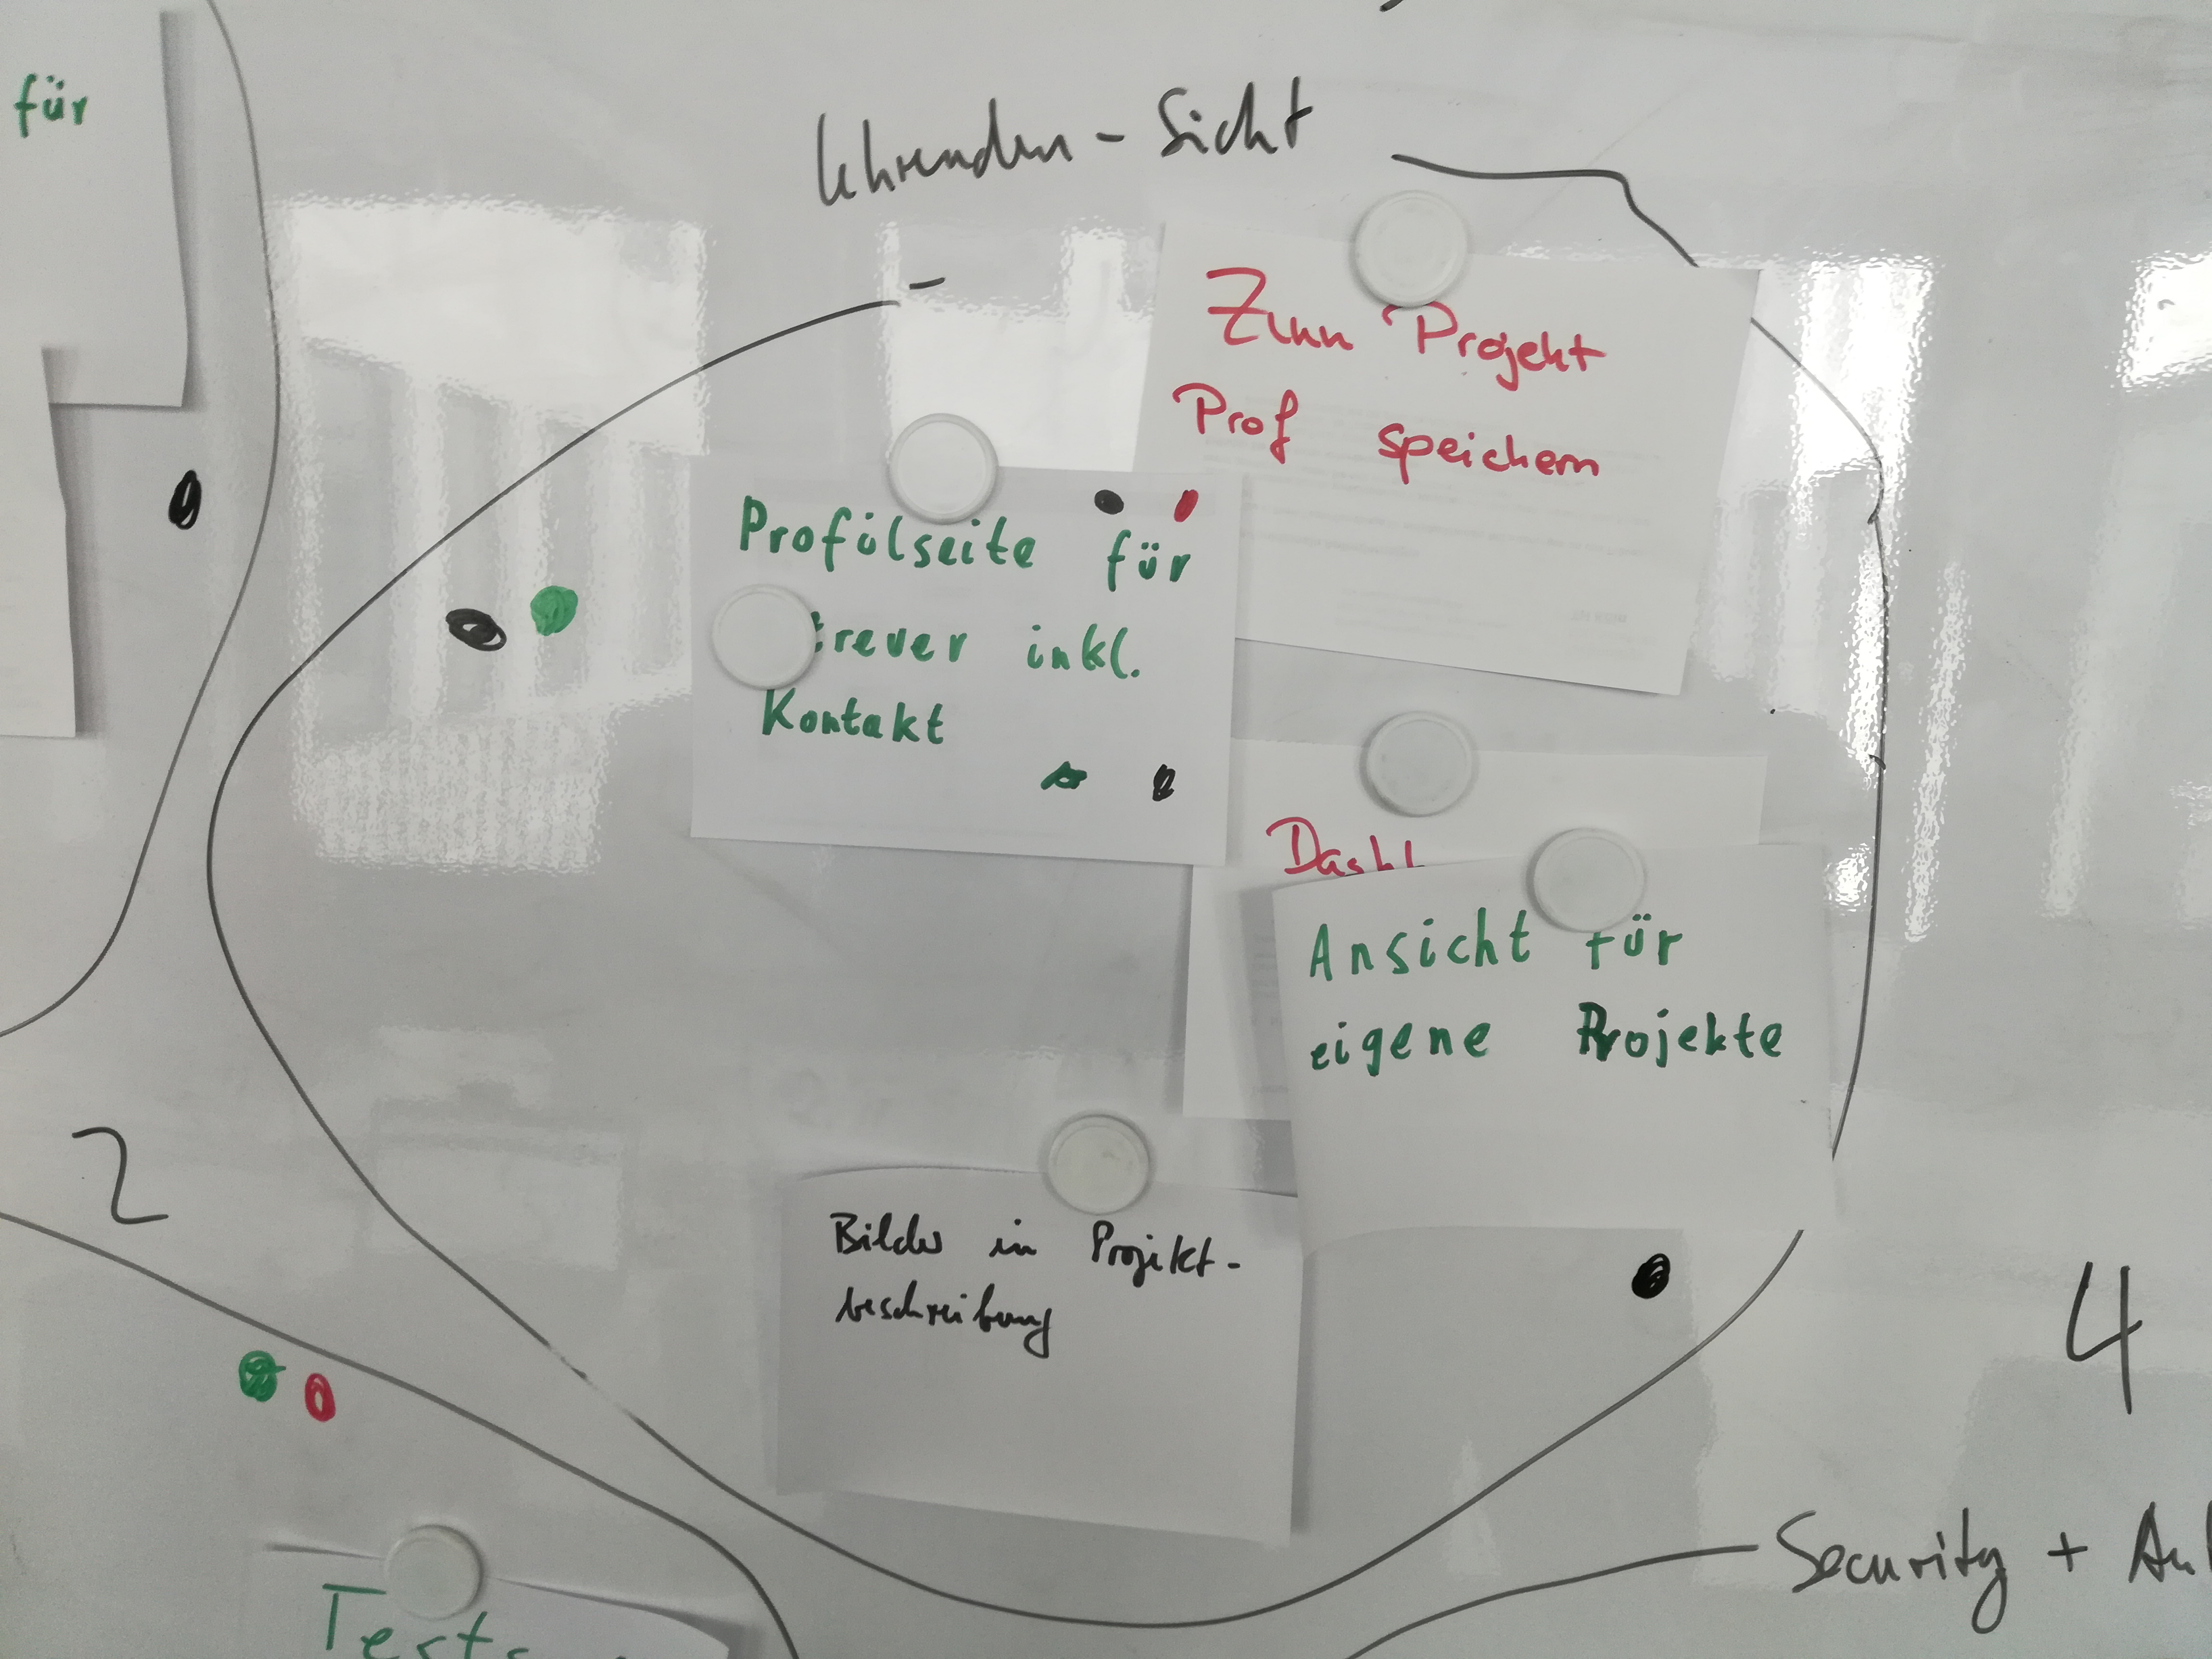 für
Lehrenden - Sicht
Zum Projekt
Prof speichern
Profilseite für
treuer inkl.
Kontakt
Dashb
Ansicht für
eigene Projekte
2
Bilder in Projekt-
beschreibung
4
Security + Au
Tests